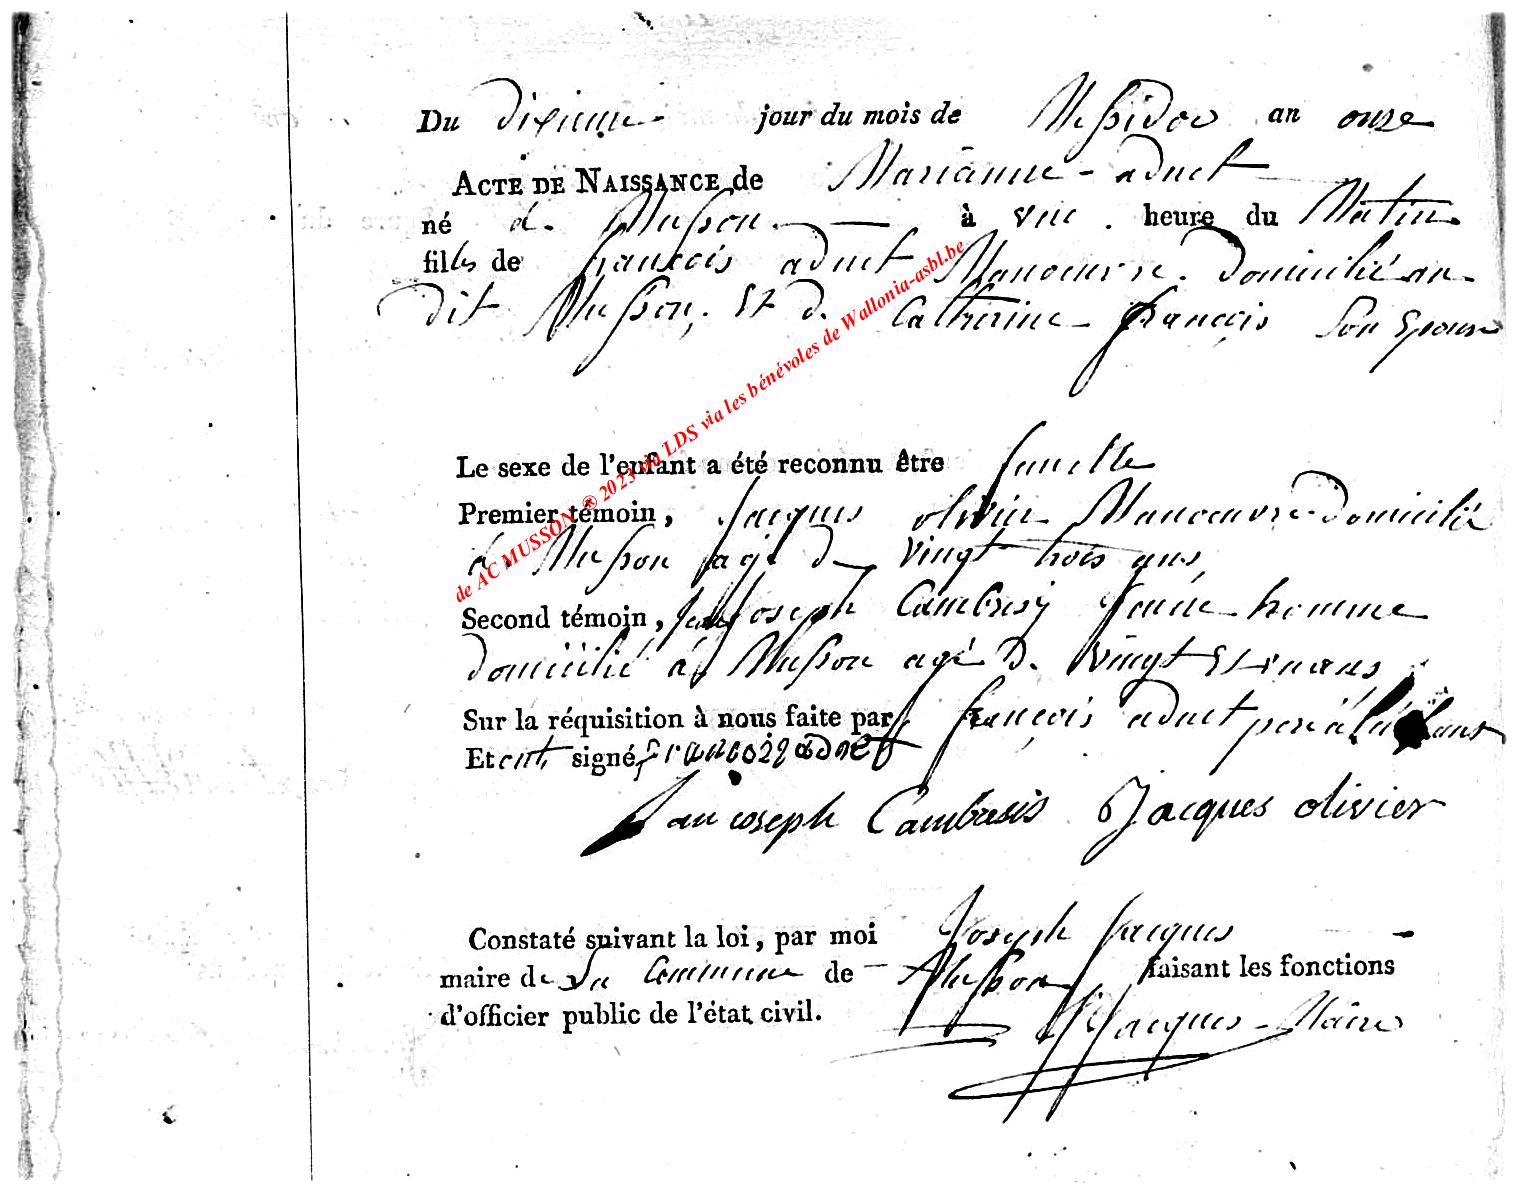 Du dixieme jour du mois de Messidor an onze
ACTE DE NAISSANCE de Marianne aduet
né à Musson à une heure du Matin
filles de françois aduet Manoeuvre domicilié au
dit Musson, Et de Catherine françois Son Epouse
Le sexe de l'enfant a été reconnu être femelle
Premier témoin, Jacques olivier Manoeuvre domicilié
à Musson agé de vingt trois ans
Second témoin, Jean Joseph Cambresij jeune homme
domicilié à Musson agé de vingt Et un ans
Sur la réquisition à nous faite par françois aduet pere à
Et ont signé francois aduet
Jan ioseph Cambresis Jacques olivier
Constaté suivant la loi, par moi Joseph Jacques
maire de La Commune de Musson faisant les fonctions
d'officier public de l'état civil. Jacques Maire
de AC MUSSON ® 2023 via LDS via les bénévoles de Wallonia-asbl.be